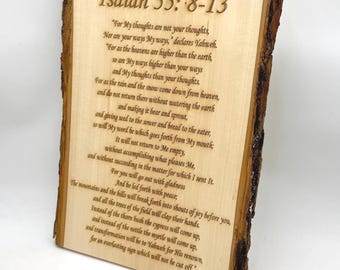 Isaiah 55: 8-13
"For My thoughts are not your thoughts,
Nor are your ways My ways," declares Yahweh.
"For as the heavens are higher than the earth,
so are My ways higher than your ways
and My thoughts than your thoughts.
For as the rain and the snow come down from heaven,
and do not return there without watering the earth
and making it bear and sprout,
and giving seed to the sower and bread to the eater,
so will My word be which goes forth from My mouth;
It will not return to Me empty,
without accomplishing what pleases Me,
and without succeeding in the matter for which I sent It.
For you will go out with gladness
And be led forth with peace;
The mountains and the hills will break forth into shouts of joy before you,
and all the trees of the field will clap their hands.
Instead of the thorn bush the cypress will come up,
and instead of the nettle the myrtle will come up,
and transformation will be to Yahweh for His renown,
for an everlasting sign which will not be cut off."